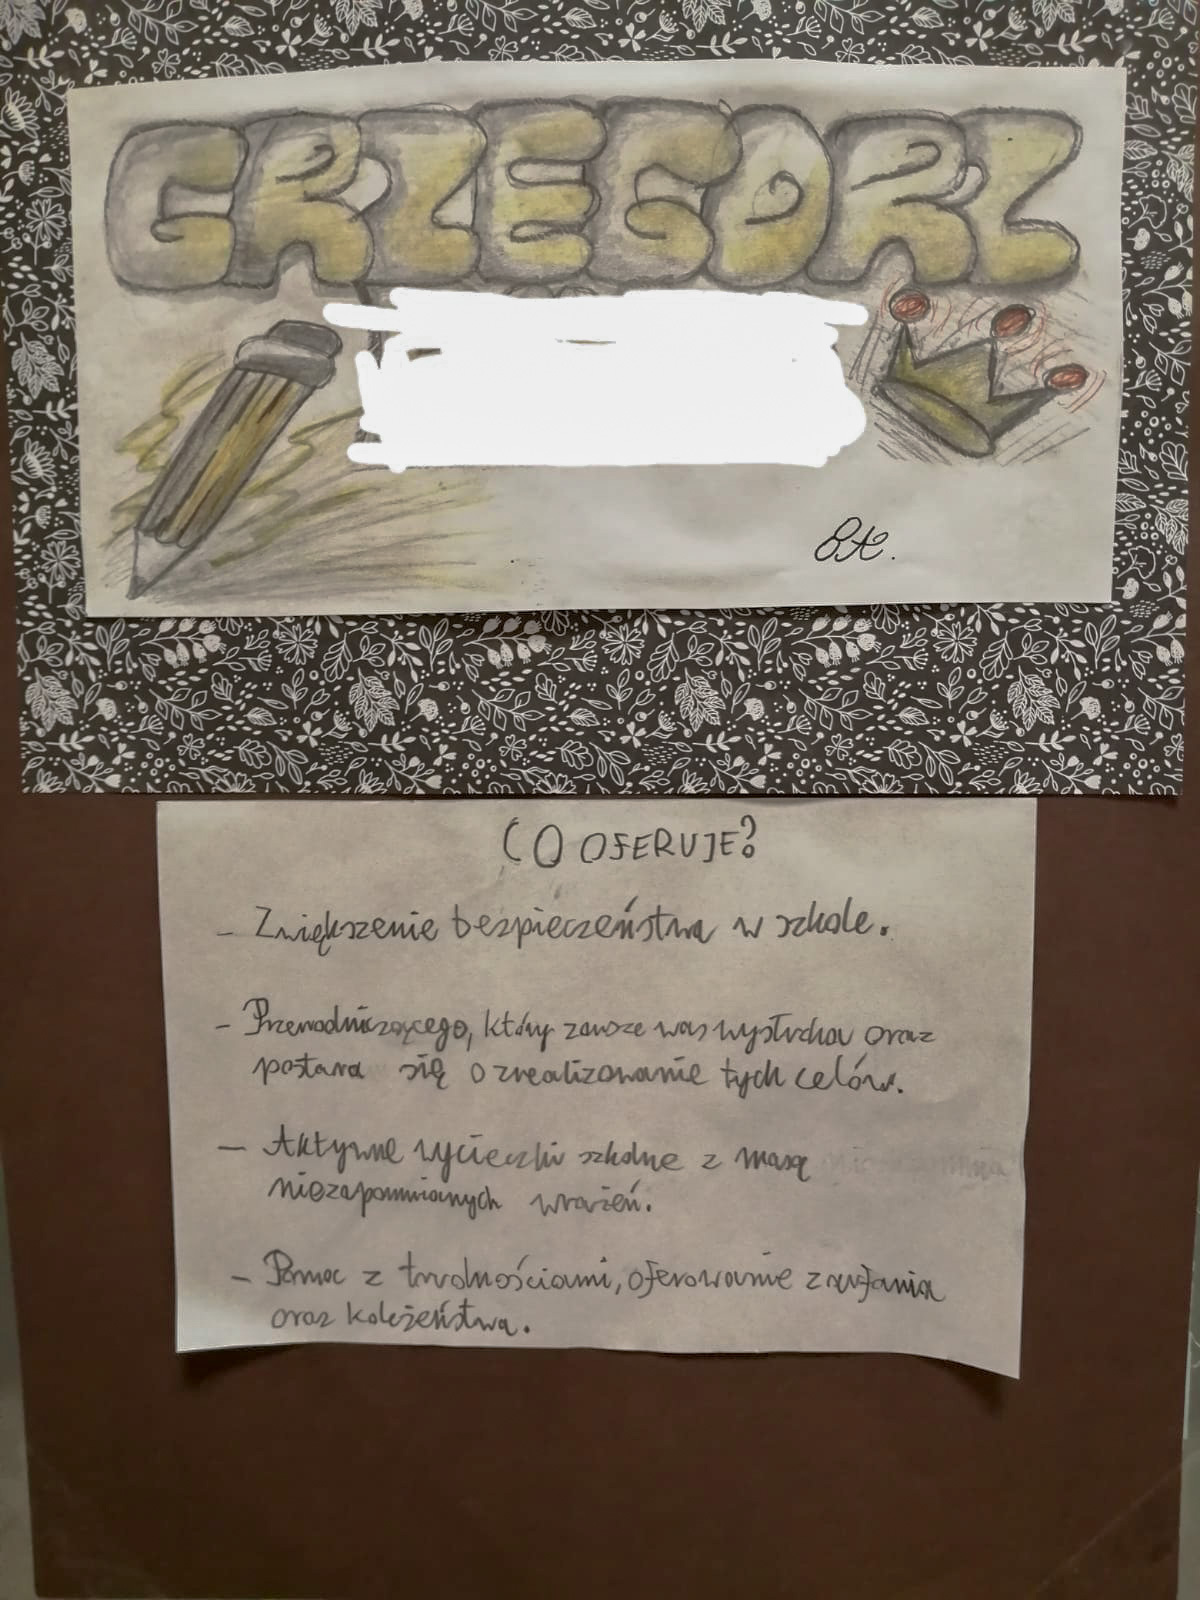 GRZEGORZ
CO OFERUJE?
- Zwiększenie bezpieczeństwa w szkole.
- Przewodniczącego, który zawsze was wysłucha oraz
postara się o zrealizowanie tych celów.
- Aktywne wycieczki szkolne z masą
niezapomnianych wrażeń.
- Pomoc z trudnościami, oferowanie zaufania
oraz koleżeństwa.